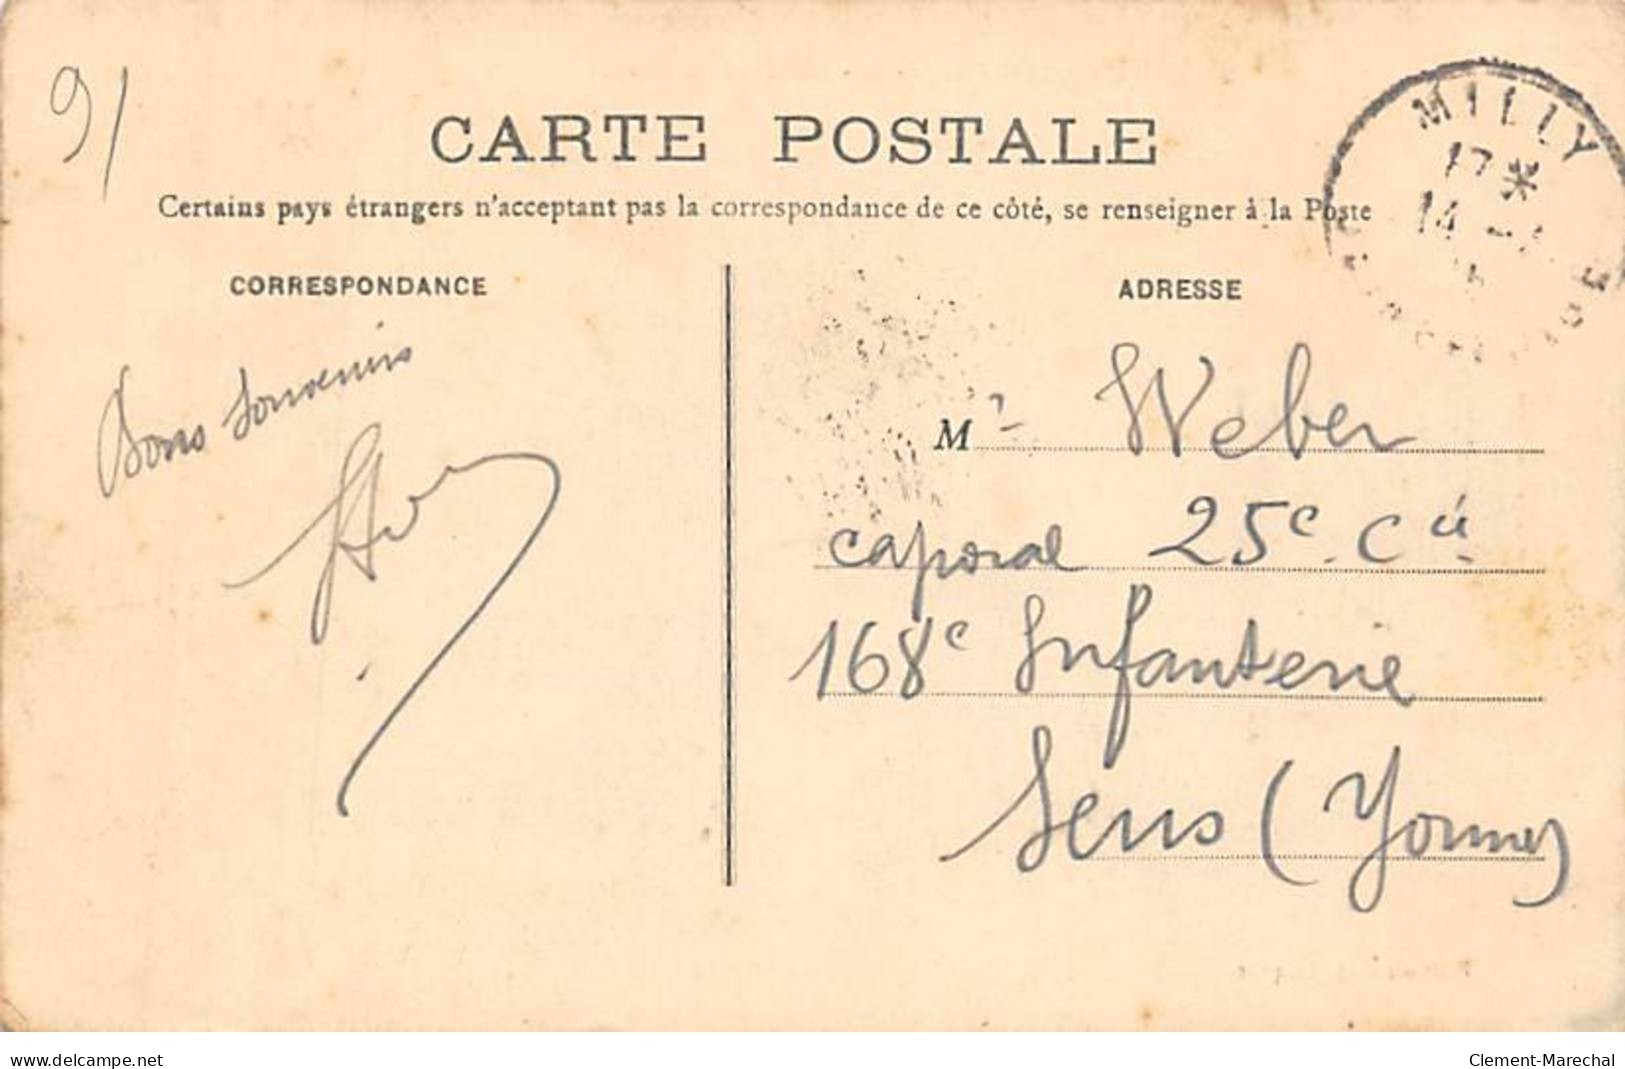 91
CARTE POSTALE
Certains pays étrangers n'acceptant pas la correspondance de ce côté, se renseigner à la Poste
MILLY
17 *
14
CORRESPONDANCE
Bons Souvenirs
ADRESSE
Mr Weber
caporal 25e Cie
168e Infanterie
Sens (Yonne)
www.delcampe.net
Clement-Marechal